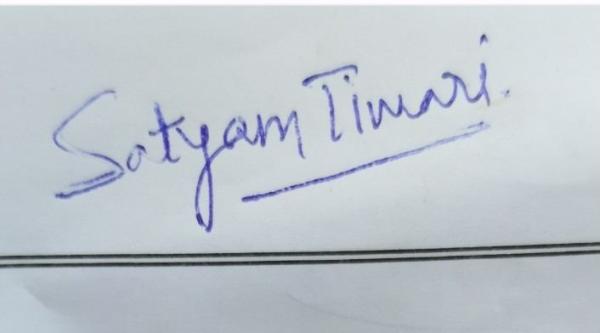 Satyam Tiwari.